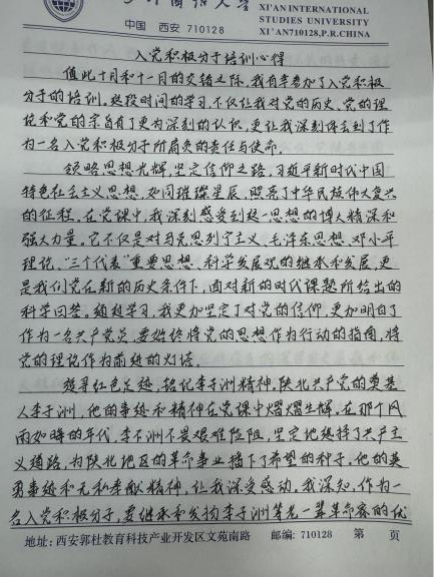 XI'AN INTERNATIONAL
STUDIES UNIVERSITY
中国 西安 710128 XI'AN710128,P.R.CHINA
入党积极分子培训心得
值此十月和十一月的交错之际,我有幸参加了入党积极
分子的培训。这段时间的学习,不仅让我对党的历史、党的理
论和党的宗旨有了更为深刻的认识,更让我深刻体会到了作
为一名入党积极分子所肩负的责任与使命。
领略思想光辉,坚定信仰之路。习近平新时代中国
特色社会主义思想,如同璀璨星辰,照亮了中华民族伟大复兴
的征程。在党课中,我深刻感受到这一思想的博大精深和
强大力量。它不仅是对马克思列宁主义、毛泽东思想、邓小平
理论、“三个代表”重要思想、科学发展观的继承和发展,更
是我们党在新的历史条件下,面对新的时代课题所给出的
科学回答。通过学习,我更加坚定了对党的信仰,更加明白了
作为一名共产党员,要始终将党的思想作为行动的指南,将
党的理论作为前进的灯塔。
追寻红色足迹,铭记李子洲精神。陕北共产党的奠基
人李子洲,他的事迹和精神在党课中熠熠生辉。在那个风
雨如晦的年代,李子洲不畏艰难险阻,坚定地选择了共产主
义道路,为陕北地区的革命事业播下了希望的种子。他的英
勇事迹和无私奉献精神,让我深受感动。我深知,作为一
名入党积极分子,要继承和发扬李子洲等老一辈革命家的优
地址:西安郭杜教育科技产业开发区文苑南路 邮编:710128 第 页